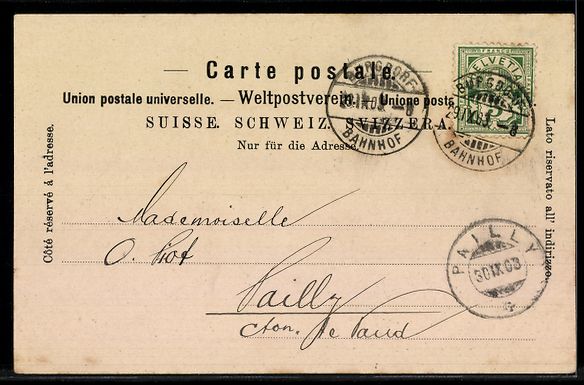 Carte postale.
Union postale universelle. — Weltpostverein. Unione posta
SUISSE. SCHWEIZ. SVIZZERA.
Nur für die Adresse.
Côté réservé à l'adresse.
Lato riservato all' indirizzo.
HELVETIA
BURGDORF
29.IX.03.-8
BAHNHOF
BURGDORF
29.IX.03.-8
BAHNHOF
PAILLY
30.IX.03
Mademoiselle
O. Piot
Pailly
cton. de Vaud